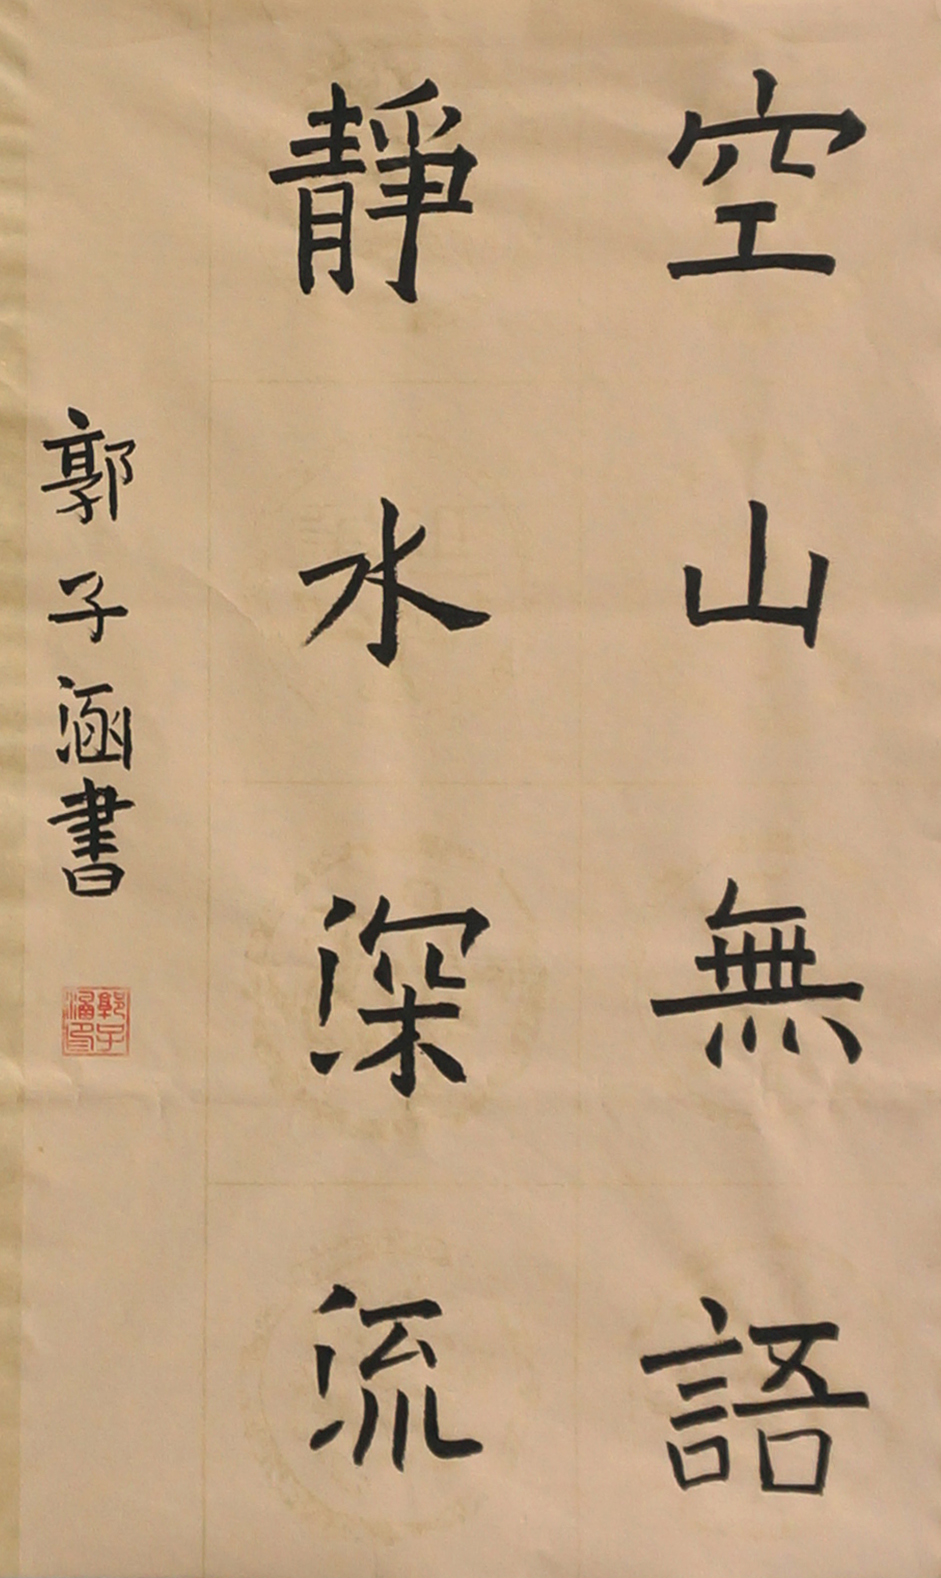 空山無語
靜水深流
郭子涵書
郭子涵印